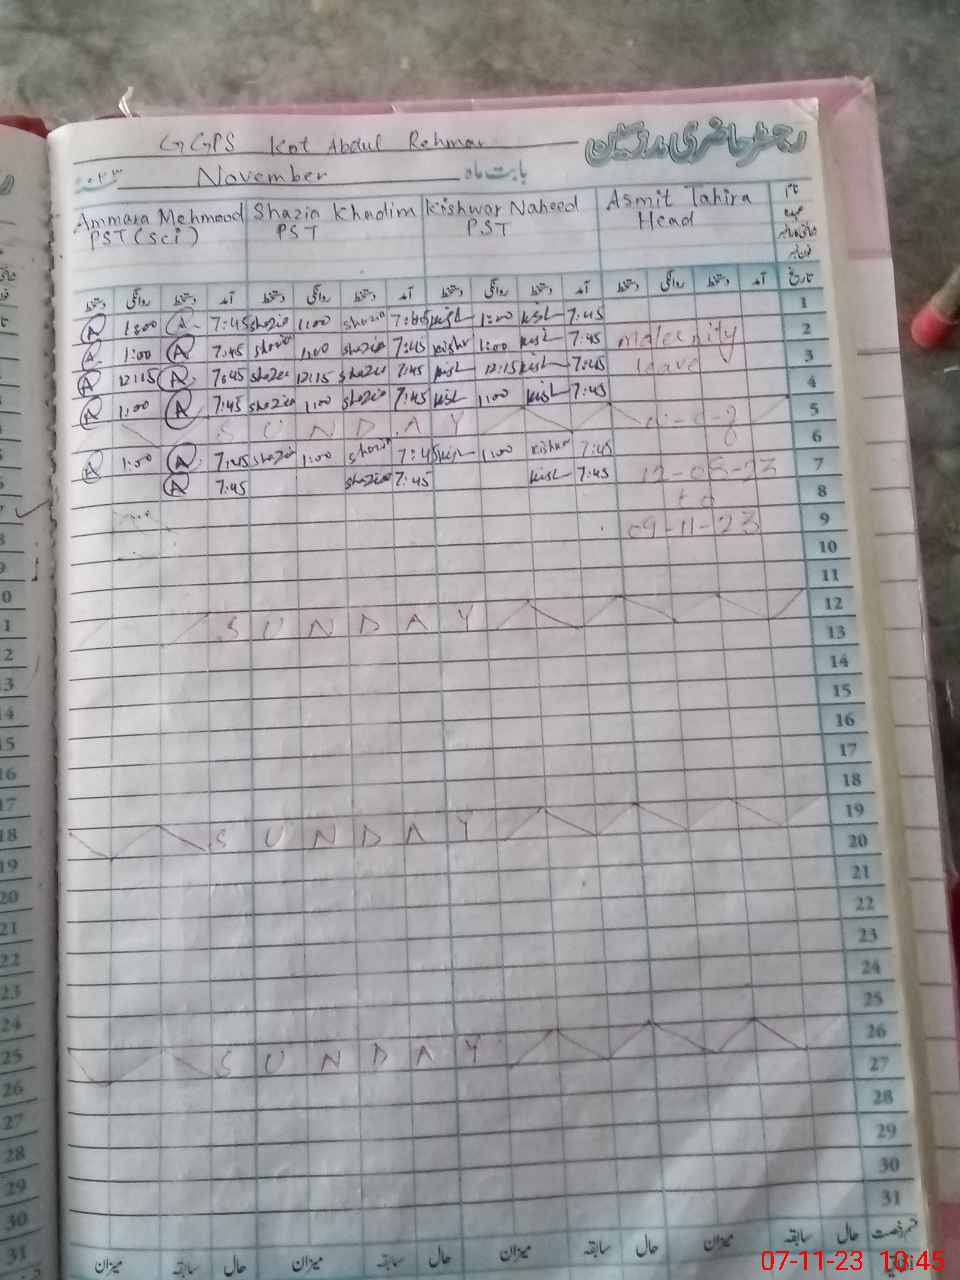 GGPS Kot Abdul Rehman رجسٹر حاضری مدرسین
November بابت ماہ ۲۰۲۳
Ammara Mehmood Shazia Khadim Kishwar Naheed Asmit Tahira نام
PST (Sci) PST PST Head عہدہ
دستخط روانگی دستخط آمد دستخط روانگی دستخط آمد دستخط روانگی دستخط آمد دستخط روانگی دستخط آمد تاریخ
A 1:00 A 7:45 shazia 1:00 shazia 7:45 kish 1:00 kish 7:45 1
A 1:00 A 7:45 shazia 1:00 shazia 7:45 kishw 1:00 kish 7:45 maternity 2
A 12:15 A 7:45 shazia 12:15 shazia 7:45 kish 12:15 kish 7:45 leave 3
A 1:00 A 7:45 shazia 1:00 shazia 7:45 kish 1:00 kish 7:45 4
S U N D A Y 5
A 1:00 A 7:45 shazia 1:00 shazia 7:45 kish 1:00 kishw 7:45 6
A 7:45 shazia 7:45 kish 7:45 12-08-23 7
to 8
09-11-23 9
10
11
S U N D A Y 12
13
14
15
16
17
18
S U N D A Y 19
20
21
22
23
24
25
S U N D A Y 26
27
28
29
30
31
میزان سابقہ حال میزان سابقہ حال میزان سابقہ حال میزان سابقہ حال
07-11-23 10:45